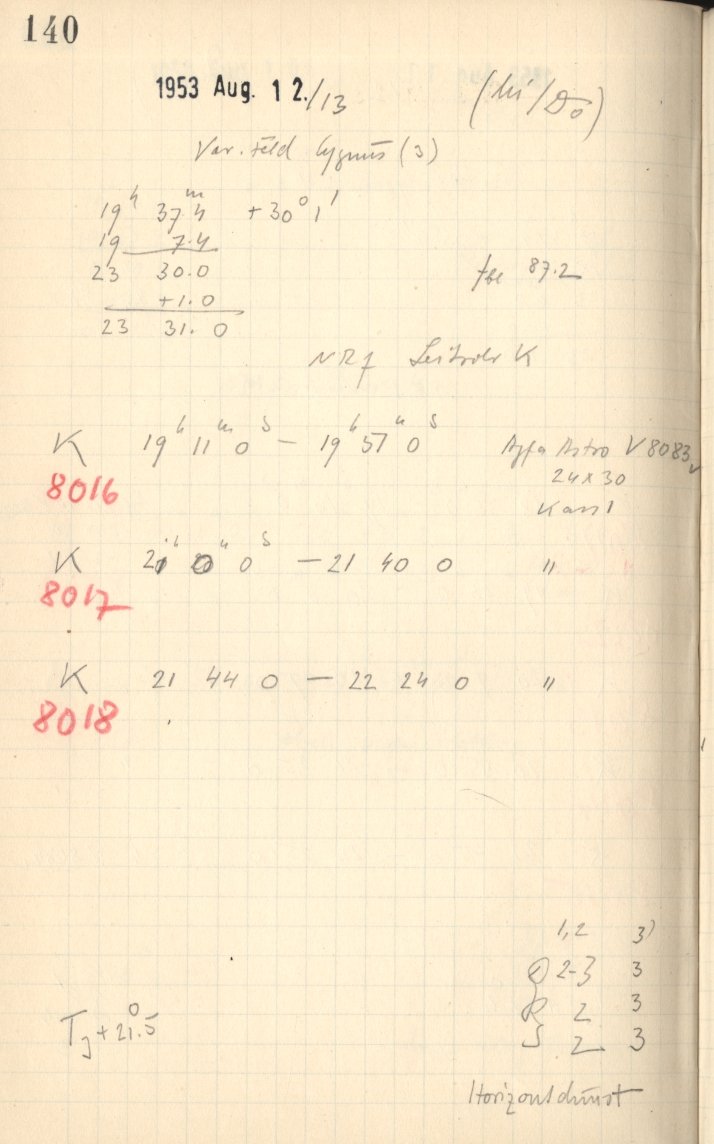 140
1953 Aug. 12./13 (Li/Do)
Var. Feld Cygnus (3)
19h 37m.4 +30° 1'
19 7.4
23 30.0
+1.0
23 31.0
87.2
K 19h 11m 0s — 19h 57m 0s Agfa Astro V 8083
8016
24 x 30
K 21h 0m 0s — 21 40 0 "
8017
K 21 44 0 — 22 24 0 "
8018
1,2 3)
D 2-3 3
R 2 3
S 2 3
TJ + 21°.5
Horizontdunst